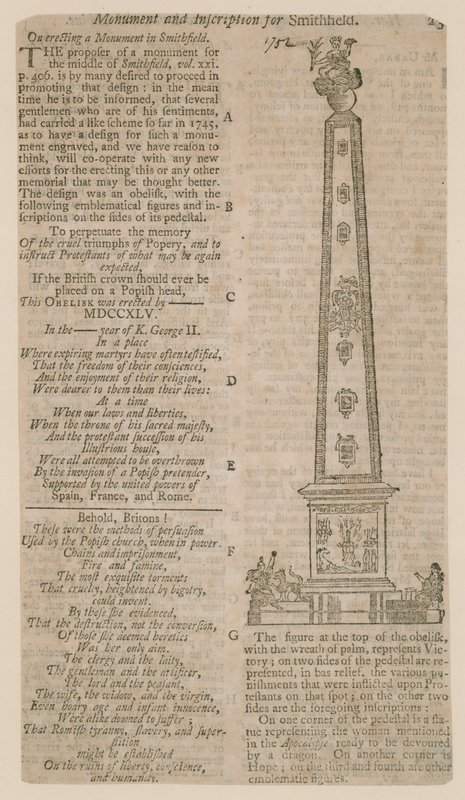 Monument and Inscription for Smithfield.
On erecting a Monument in Smithfield.
THE proposer of a monument for
the middle of Smithfield, vol. xxi.
p. 406. is by many desired to proceed in
promoting that design: in the mean
time he is to be informed, that several
gentlemen who are of his sentiments,
had carried a like scheme so far in 1745,
as to have a design for such a monu-
ment engraved, and we have reason to
think, will co-operate with any new
efforts for the erecting this or any other
memorial that may be thought better.
The design was an obelisk, with the
following emblematical figures and in-
scriptions on the sides of its pedestal.
To perpetuate the memory
Of the cruel triumphs of Popery, and to
instruct Protestants of what may be again
expected,
If the British crown should ever be
placed on a Popish head,
This OBELISK was erected by ——
MDCCXLV.
In the —— year of K. George II.
In a place
Where expiring martyrs have often testified,
That the freedom of their consciences,
And the enjoyment of their religion,
Were dearer to them than their lives:
At a time
When our laws and liberties,
When the throne of his sacred majesty,
And the protestant succession of his
Illustrious house,
Were all attempted to be overthrown
By the invasion of a Popish pretender,
Supported by the united powers of
Spain, France, and Rome.
Behold, Britons!
These were the methods of persuasion
Used by the Popish church, when in power.
Chains and imprisonment,
Fire and famine,
The most exquisite torments
That cruelty, heightened by bigotry,
could invent.
By these she evidenced,
That the destruction, not the conversion,
Of those she deemed heretics
Was her only aim.
The clergy and the laity,
The gentleman and the artificer,
The lord and the peasant,
The wife, the widow, and the virgin,
Even hoary age and infant innocence,
Were alike doomed to suffer;
That Romish tyranny, slavery, and super-
stition
might be established
On the ruins of liberty, conscience,
and humanity.
A
B
C
D
E
F
G
1752
The figure at the top of the obelisk,
with the wreath of palm, represents Vic-
tory; on two sides of the pedestal are re-
presented, in bas relief, the various pu-
nishments that were inflicted upon Pro-
testants on that spot; on the other two
sides are the foregoing inscriptions:
On one corner of the pedestal is a sta-
tue representing the woman mentioned
in the Apocalypse ready to be devoured
by a dragon. On another corner is
Hope; on the third and fourth are other
emblematic figures.